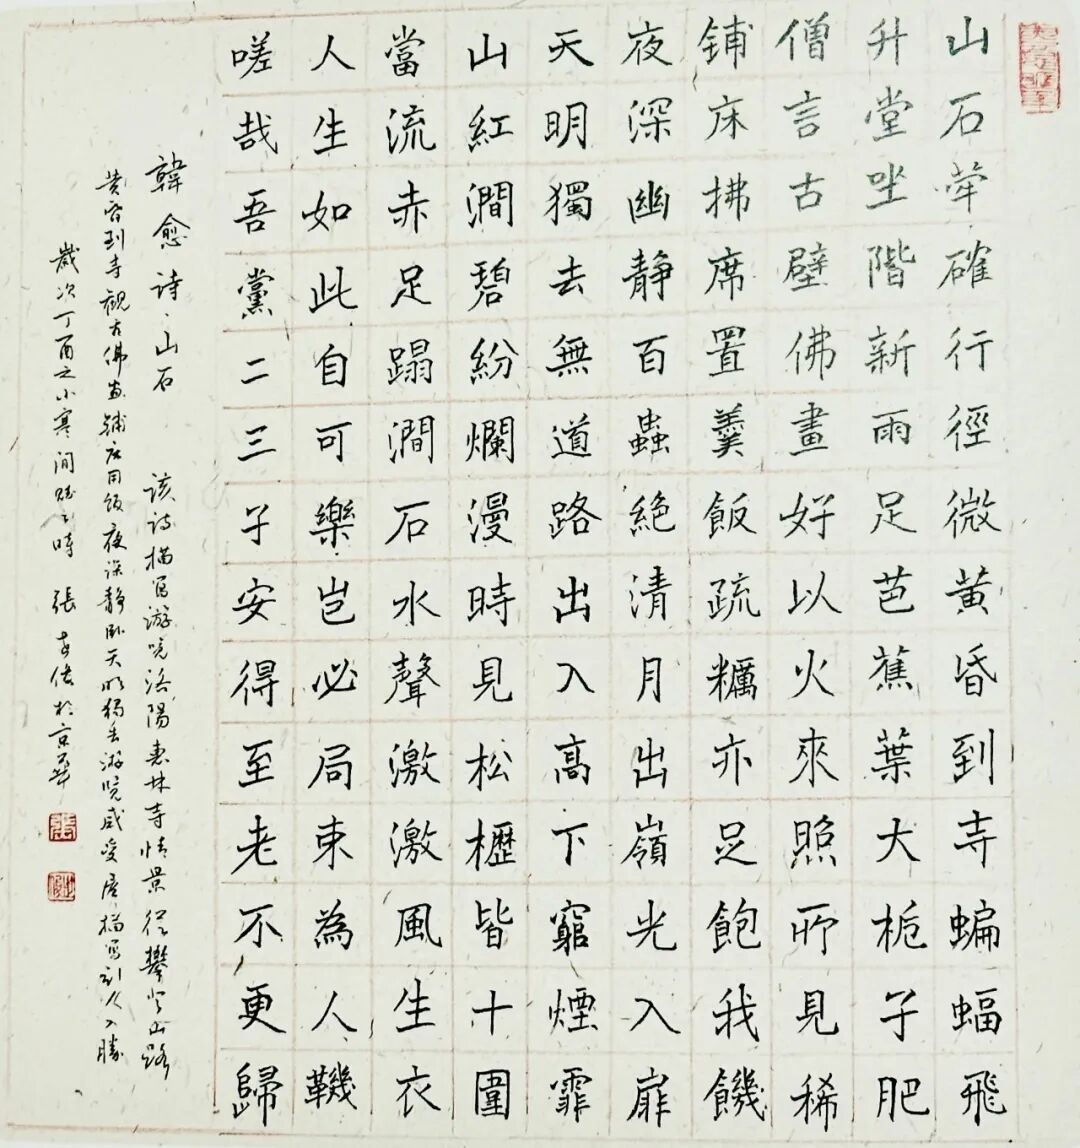 山石荦確行徑微黄昏到寺蝙蝠飛
升堂坐階新雨足芭蕉葉大栀子肥
僧言古壁佛畫好以火來照所見稀
鋪床拂席置羹飯疏糲亦足飽我饑
夜深幽静百蟲絶清月出嶺光入扉
天明獨去無道路出入高下窮煙霏
山紅澗碧紛爛漫時見松櫪皆十圍
當流赤足蹋澗石水聲激激風生衣
人生如此自可樂豈必局束為人鞿
嗟哉吾黨二三子安得至老不更歸
韓愈詩·山石 该诗描写游览洛陽惠林寺情景從攀登山路
黄昏到寺觀古佛畫鋪床用饭夜深静卧天明獨去游览感受描写引人入勝
歲次丁酉之小寒间時 張於京華